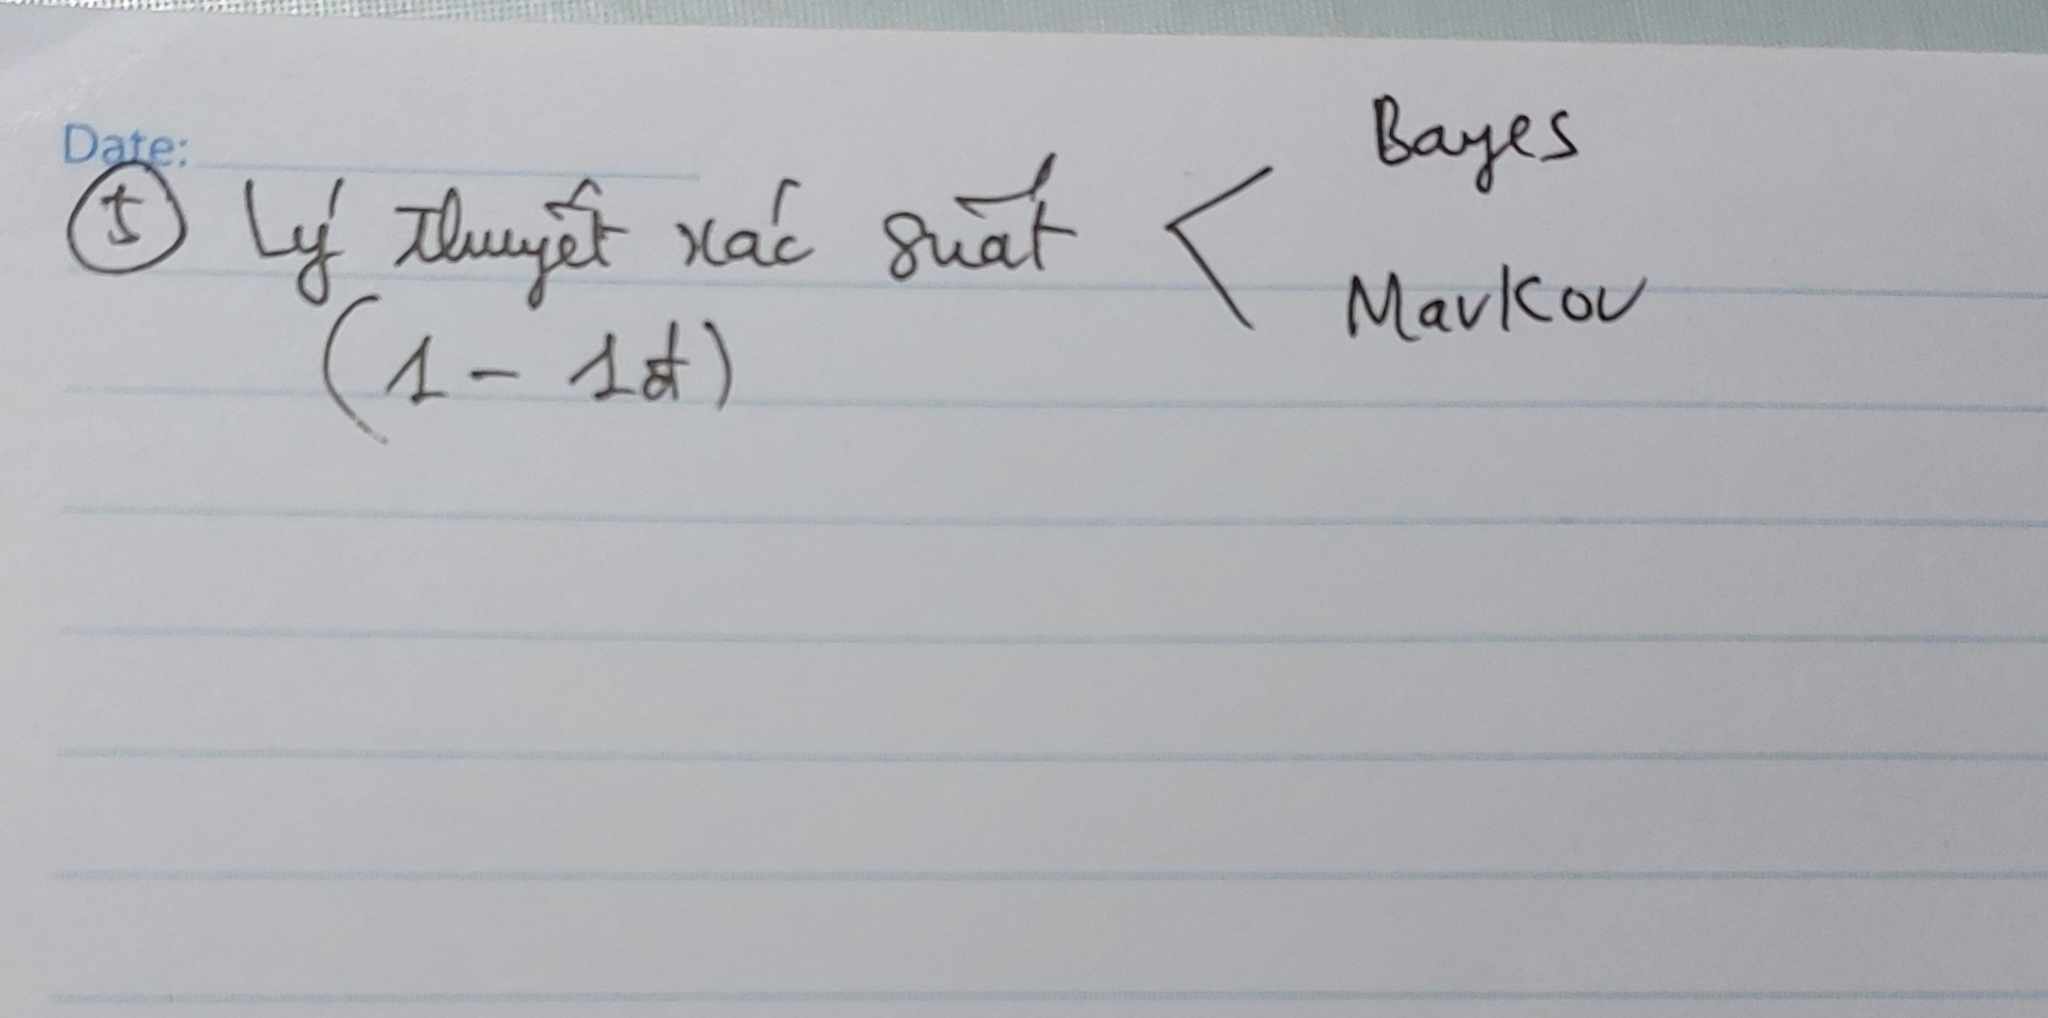 Date:
⑤ Lý thuyết xác suất <
Bayes
Markov
(1 - 1đ)